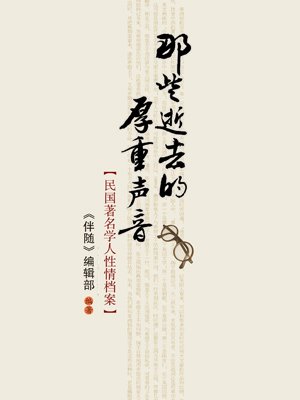 那些逝去的
厚重声音
【民国著名学人性情档案】
《伴随》编辑部 编著